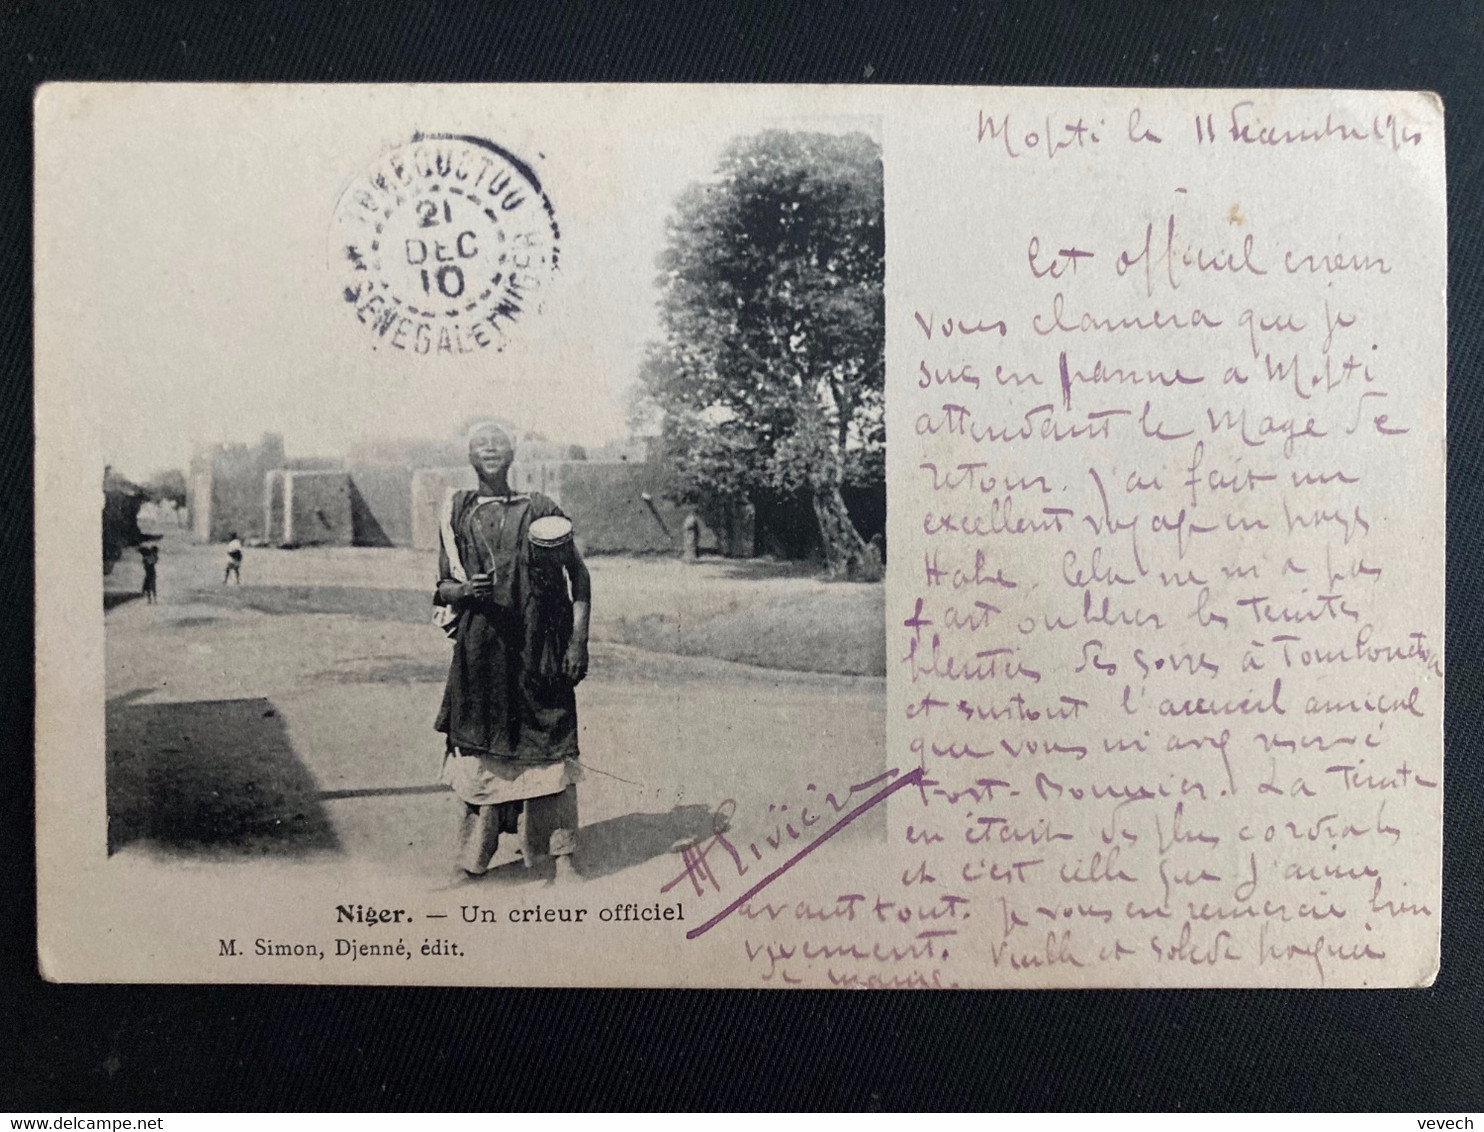 TOMBOUCTOU
21
DEC
10
SENEGAL ET NIGER
Mopti le 11 décembre 1910
Cet officiel crieur
vous clamera que je
suis en panne a Mopti
attendant le Mage de
retour. J'ai fait un
excellent voyage en pays
Habé. Cela ne m'a pas
fait oublier les teintes
bleutées des soirs à Tombouctou
et surtout l'accueil amical
que vous m'avez réservé
Fort-Bonnier. La
en était des plus cordiales
et c'est celle que j'aime
avant tout. Je vous en remercie bien
vivement. Vieille et solide poignée
de mains.
Niger. — Un crieur officiel
M. Simon, Djenné, édit.
vevech